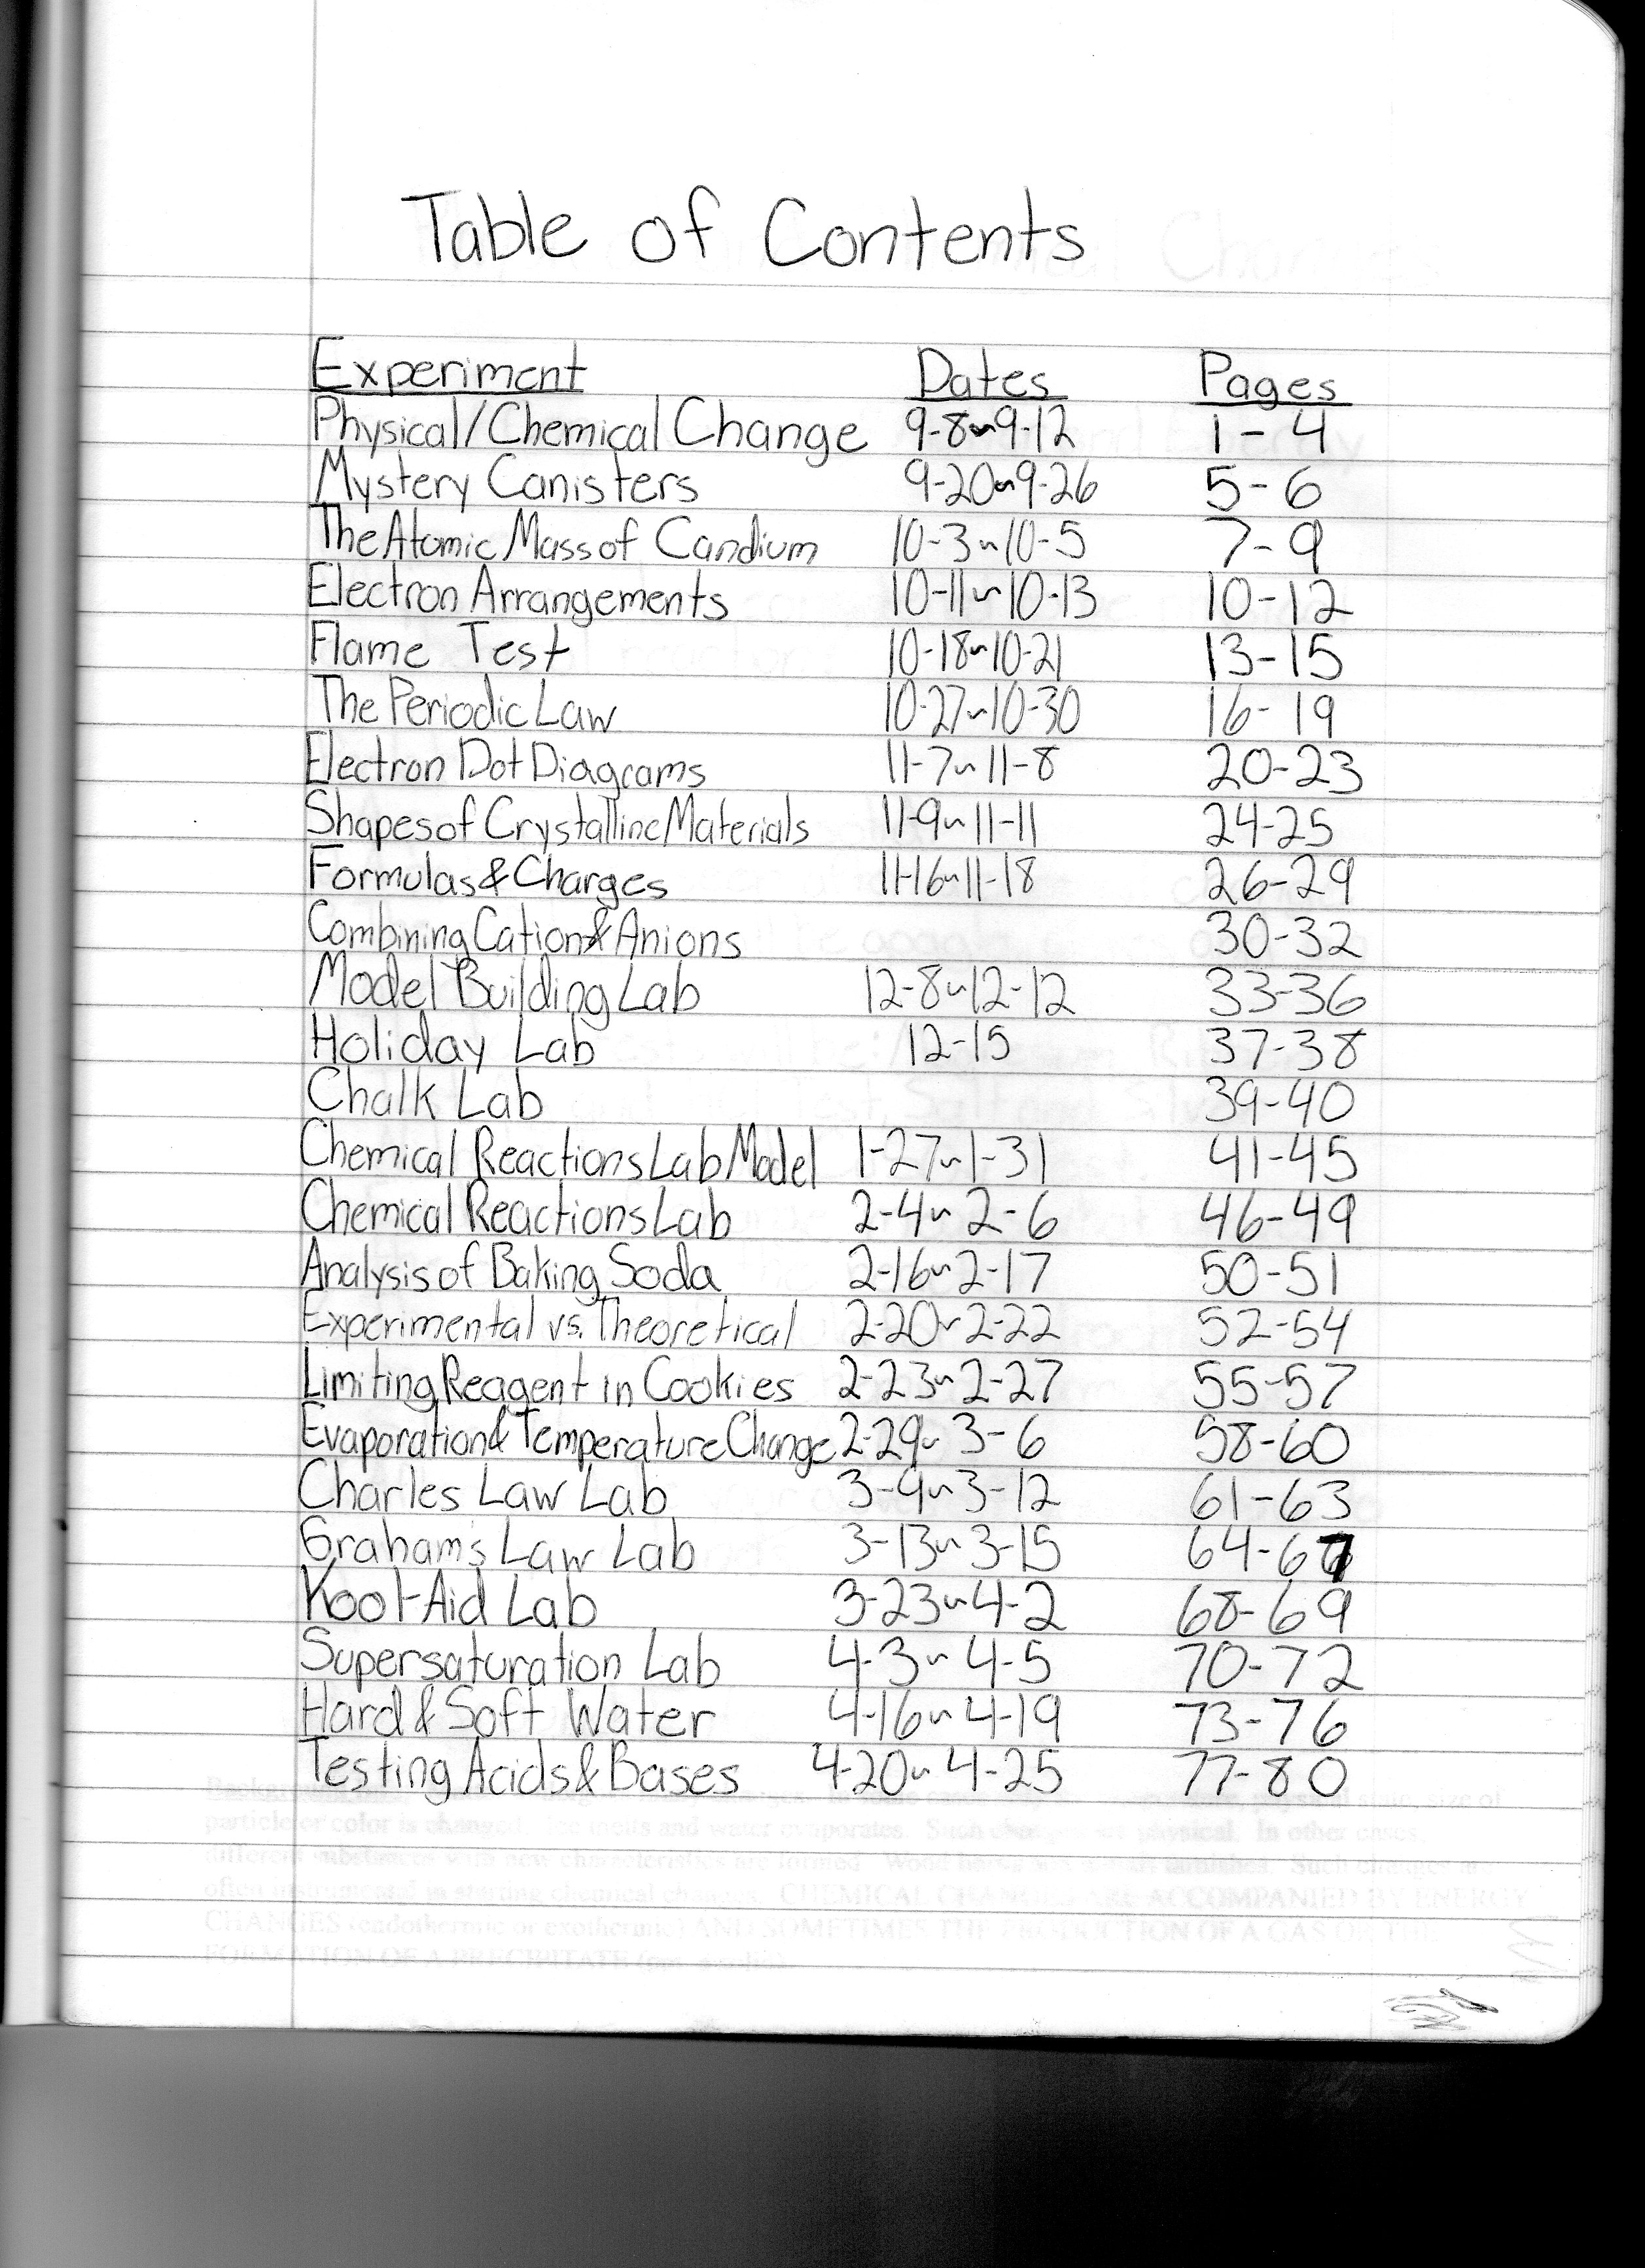 Table of Contents
Experiment Dates Pages
Physical/Chemical Change 9-8~9-12 1-4
Mystery Canisters 9-20~9-26 5-6
The Atomic Mass of Candium 10-3~10-5 7-9
Electron Arrangements 10-11~10-13 10-12
Flame Test 10-18~10-21 13-15
The Periodic Law 10-27~10-30 16-19
Electron Dot Diagrams 11-7~11-8 20-23
Shapes of Crystalline Materials 11-9~11-11 24-25
Formulas & Charges 11-16~11-18 26-29
Combining Cation & Anions 30-32
Model Building Lab 12-8~12-12 33-36
Holiday Lab 12-15 37-38
Chalk Lab 39-40
Chemical Reactions Lab Model 1-27~1-31 41-45
Chemical Reactions Lab 2-4~2-6 46-49
Analysis of Baking Soda 2-16~2-17 50-51
Experimental vs. Theoretical 2-20~2-22 52-54
Limiting Reagent in Cookies 2-23~2-27 55-57
Evaporation & Temperature Change 2-29~3-6 58-60
Charles Law Lab 3-9~3-12 61-63
Graham's Law Lab 3-13~3-15 64-67
Kool-Aid Lab 3-23~4-2 68-69
Supersaturation Lab 4-3~4-5 70-72
Hard & Soft Water 4-16~4-19 73-76
Testing Acids & Bases 4-20~4-25 77-80